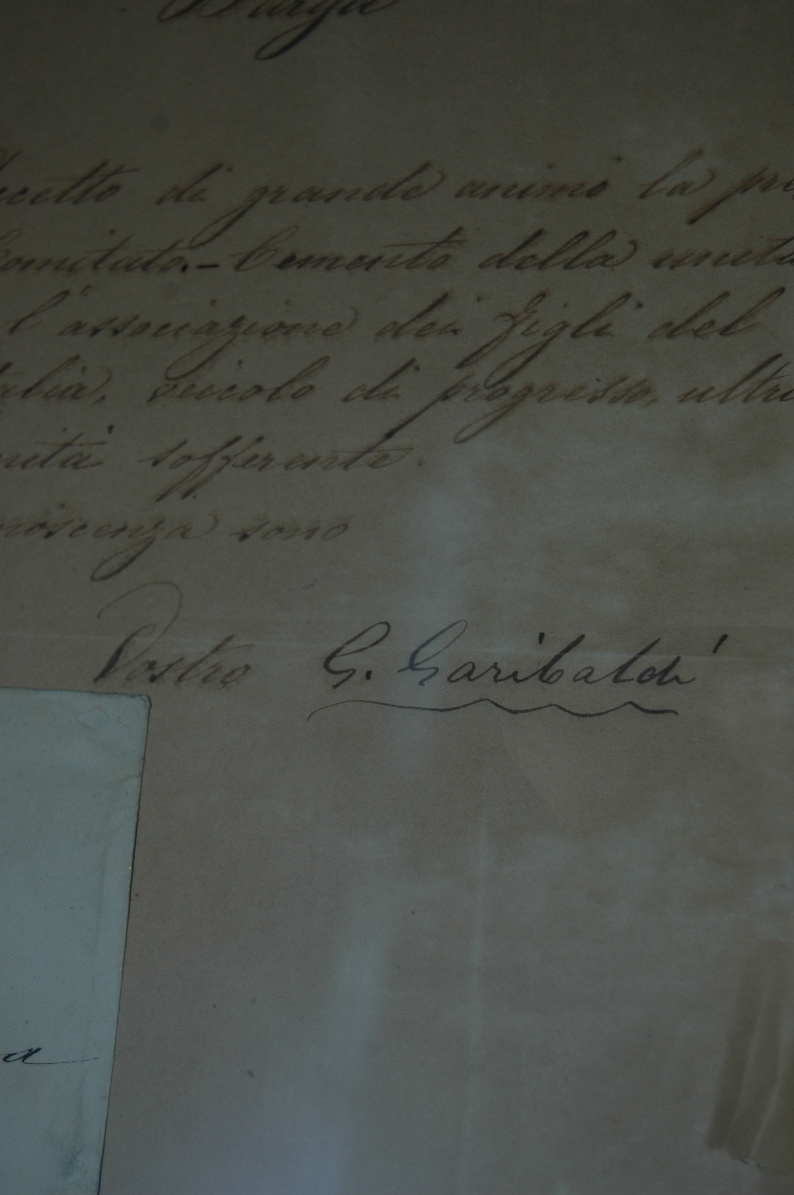 ccetto di grande animo la pr
Comitato.- Cemento della unita
l'associazione dei figli del
talia, veicolo di progresso, ultri
nità sofferente.
noscenza sono
Vostro G. Garibaldi
a